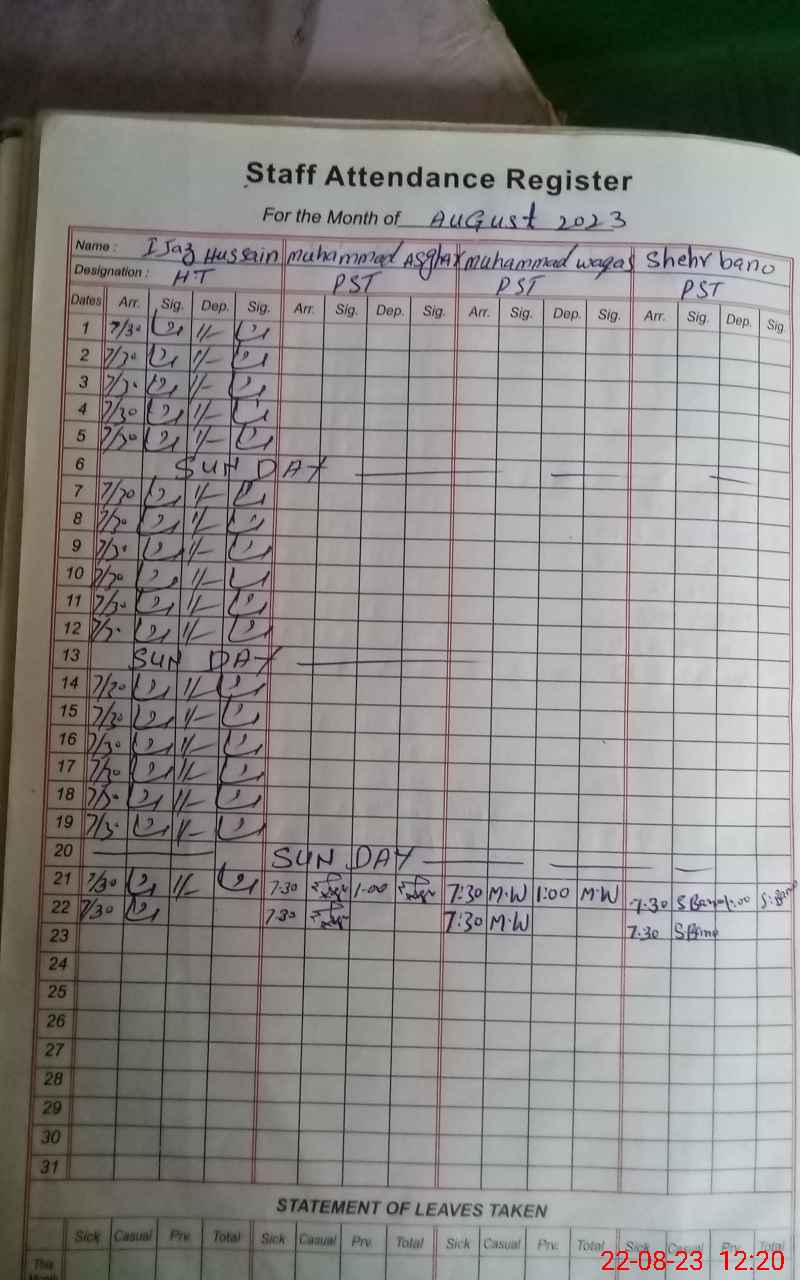 Staff Attendance Register
For the Month of AuGust 2023
Name : IJaz Hussain muhammad ASghAr muhammad waqas Shehr bano
Designation : HT PST PST PST
Dates Arr. Sig. Dep. Sig. Arr. Sig. Dep. Sig. Arr. Sig. Dep. Sig. Arr. Sig. Dep. Sig.
1 7/30 1/-
2 7/30 1/-
3 7/30 1/-
4 7/30 1/-
5 7/30 1/-
6 SUN DAY
7 7/30 1/-
8 7/30 1/-
9 7/30 1/-
10 7/30 1/-
11 7/30 1/-
12 7/30 1/-
13 SUN DAY
14 7/30 1/-
15 7/30 1/-
16 7/30 1/-
17 7/30 1/-
18 7/30 1/-
19 7/30 1/-
20 SUN DAY
21 7/30 1/- 7.30 1.00 7:30 M.W 1:00 M.W 7.30 S Bano 1:00 S.Bano
22 7/30 7.30 7:30 M.W 7.30 S Bano
23
24
25
26
27
28
29
30
31
STATEMENT OF LEAVES TAKEN
Sick Casual Prv. Total Sick Casual Prv. Total Sick Casual Prv. Total Sick Casual Prv. Total
This
Month
22-08-23 12:20